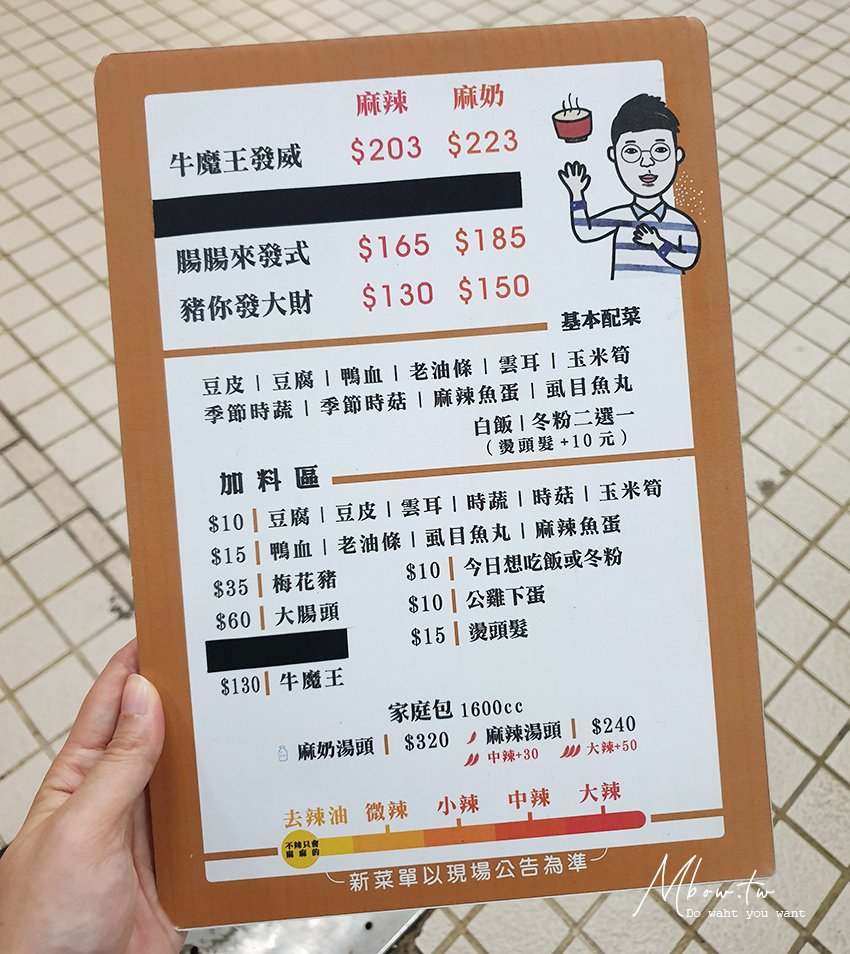 麻辣 麻奶
牛魔王發威 $203 $223
腸腸來發式 $165 $185
豬你發大財 $130 $150
基本配菜
豆皮 | 豆腐 | 鴨血 | 老油條 | 雲耳 | 玉米筍
季節時蔬 | 季節時菇 | 麻辣魚蛋 | 虱目魚丸
白飯 | 冬粉二選一
(燙頭髮+10元)
加料區
$10 | 豆腐 | 豆皮 | 雲耳 | 時蔬 | 時菇 | 玉米筍
$15 | 鴨血 | 老油條 | 虱目魚丸 | 麻辣魚蛋
$35 | 梅花豬 $10 | 今日想吃飯或冬粉
$60 | 大腸頭 $10 | 公雞下蛋
$15 | 燙頭髮
$130 | 牛魔王
家庭包 1600cc
麻奶湯頭 | $320 麻辣湯頭 | $240
中辣+30 大辣+50
去辣油 微辣 小辣 中辣 大辣
不辣只會
麻麻的
新菜單以現場公告為準
Mbow.tw
Do waht you want